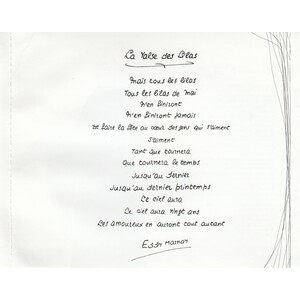 La Valse des Lilas
Mais tous les lilas
Tous les lilas de mai
N'en finiront
N'en finiront jamais
De faire la fête au cœur des gens qui s'aiment
S'aiment
Tant que tournera
Que tournera le temps
Jusqu'au dernier
Jusqu'au dernier printemps
Le ciel aura
Le ciel aura vingt ans
Les amoureux en auront tout autant
Eddy Marnay